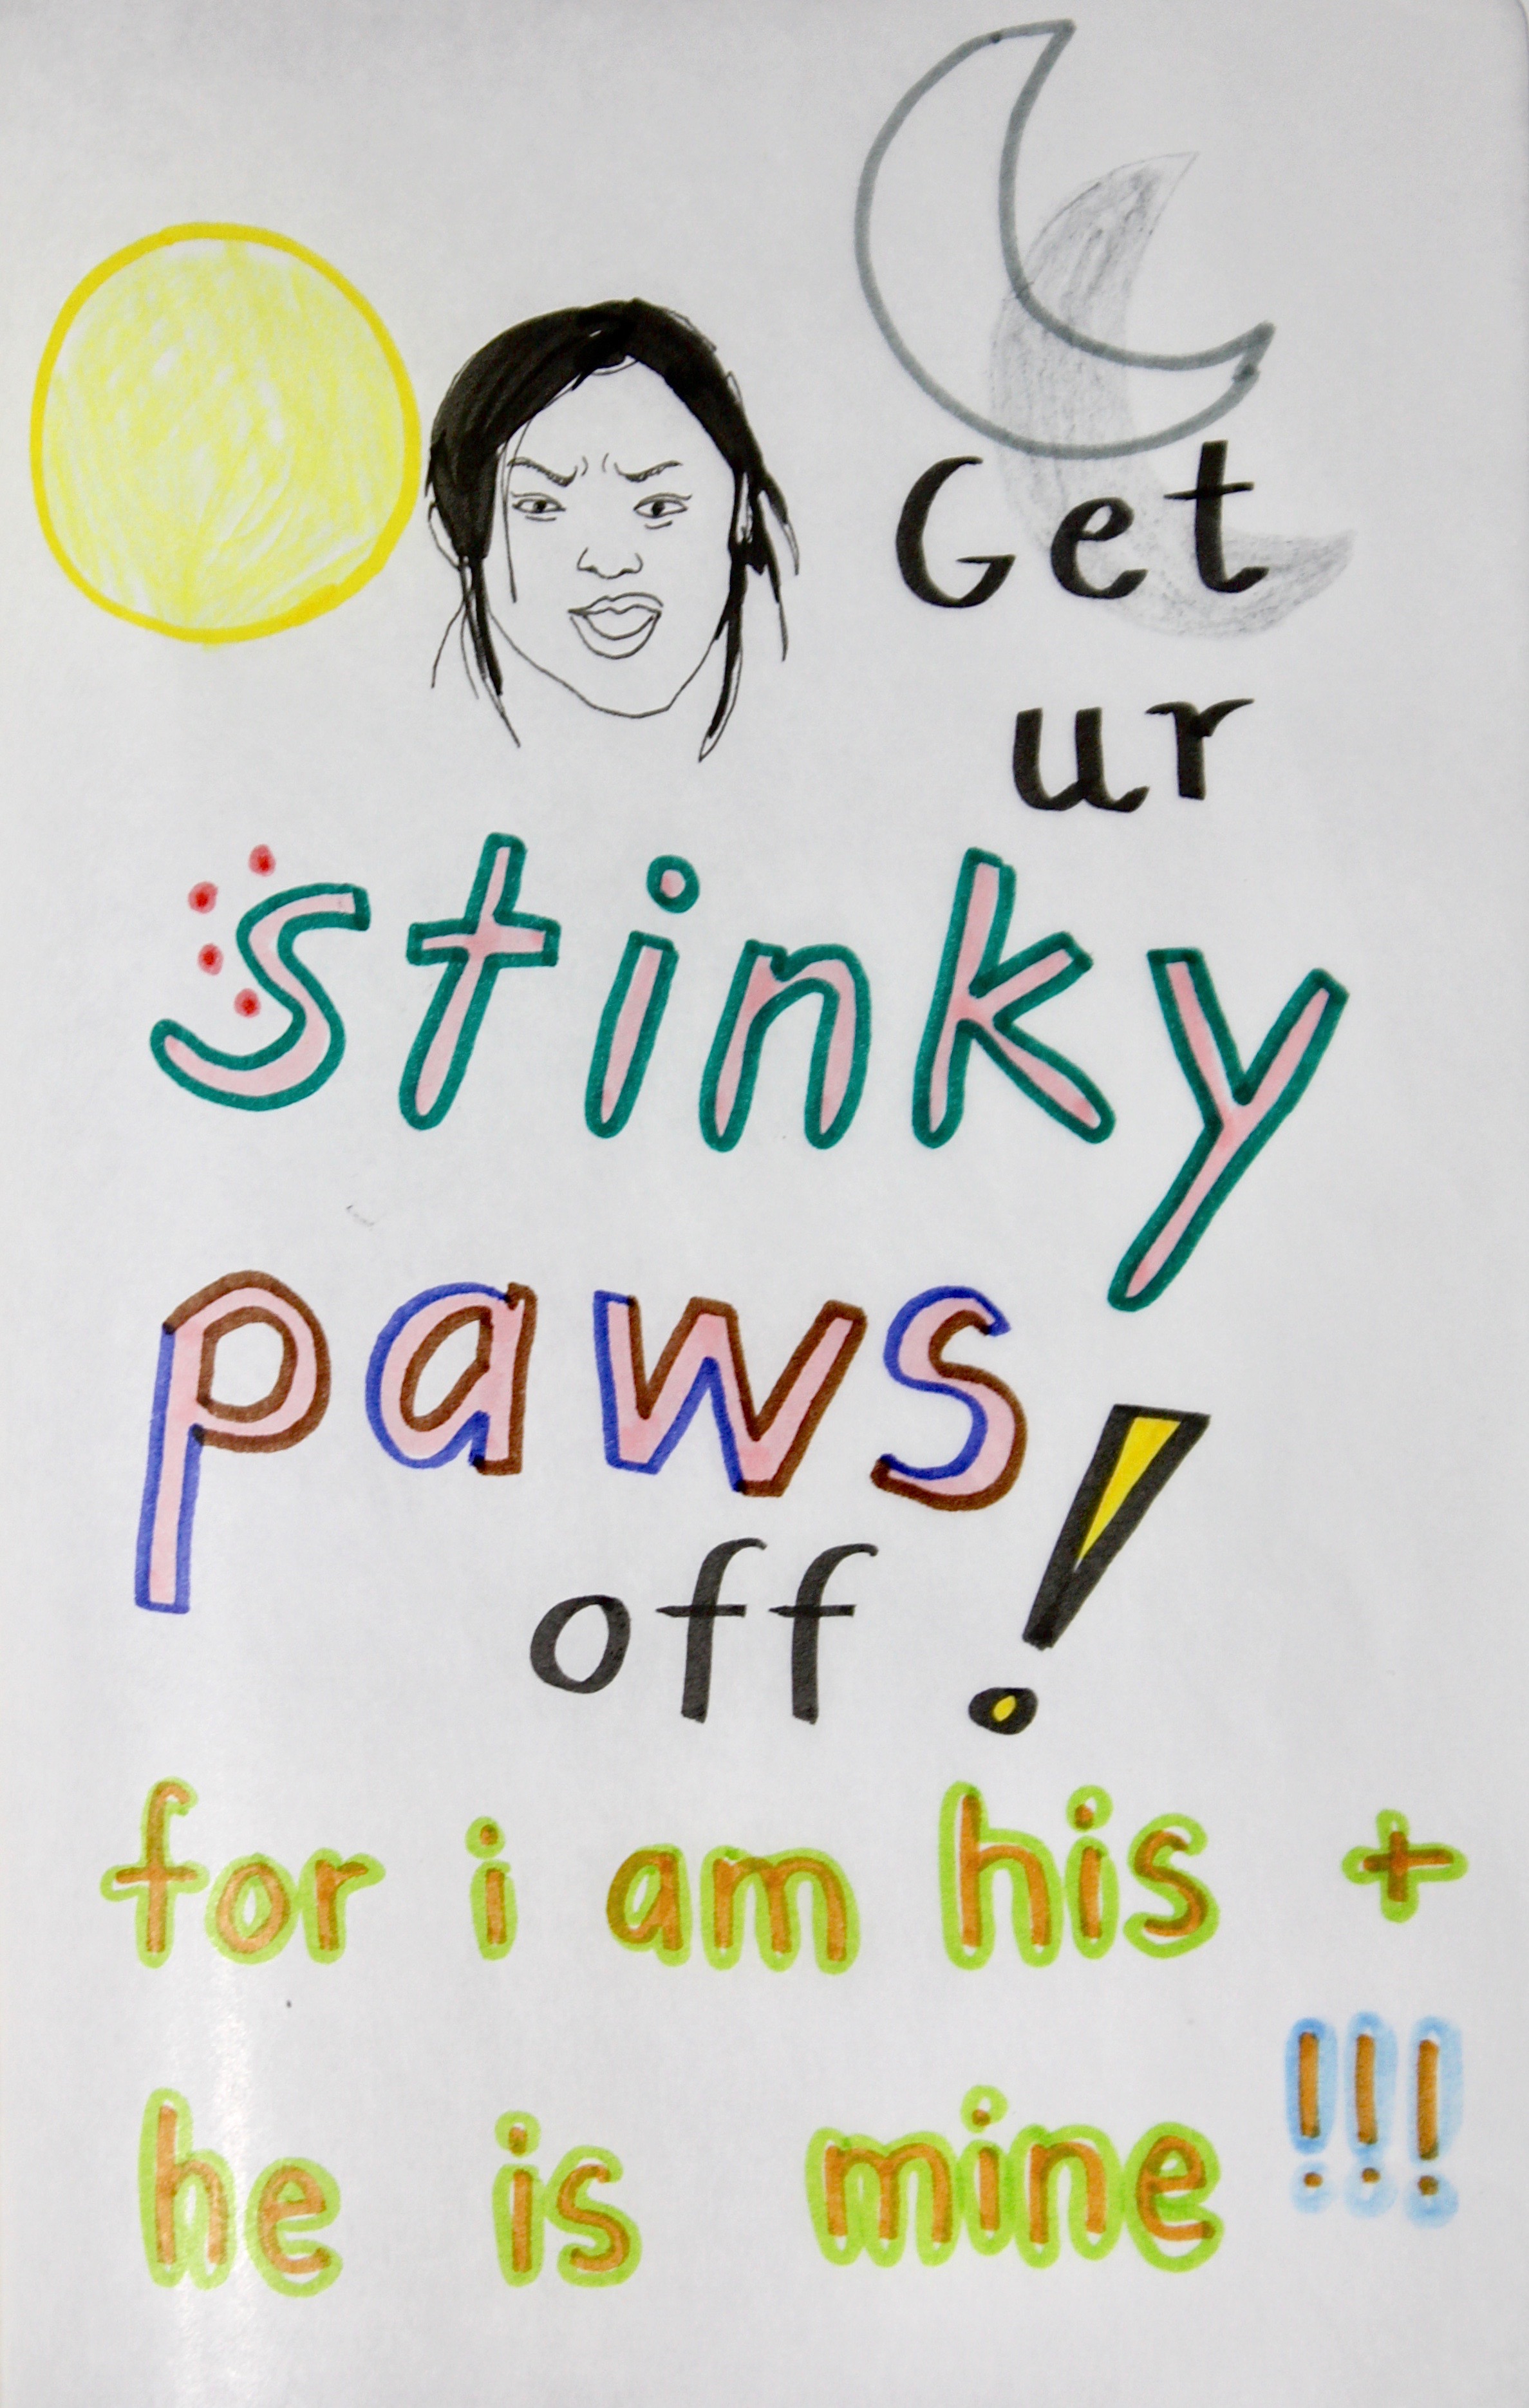 Get
ur
stinky
paws
off!
for i am his +
he is mine!!!